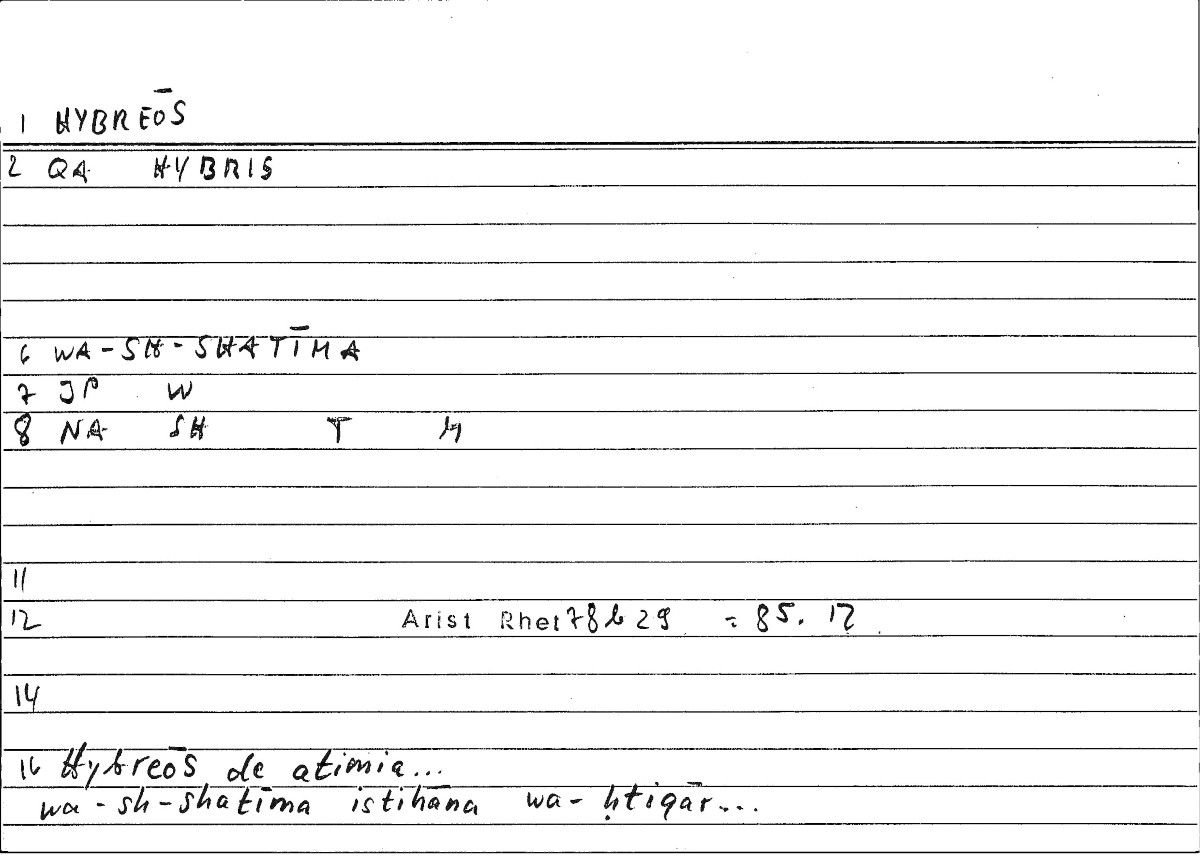 1 HYBREŌS
2 QA HYBRIS
6 WA-SH-SHATĪMA
7 JP W
8 NA SH T M
11
12 Arist Rhet 78b29 = 85.12
14
16 Hybreōs de atimia...
wa-sh-shatīma istihāna wa-ḥtiqār...